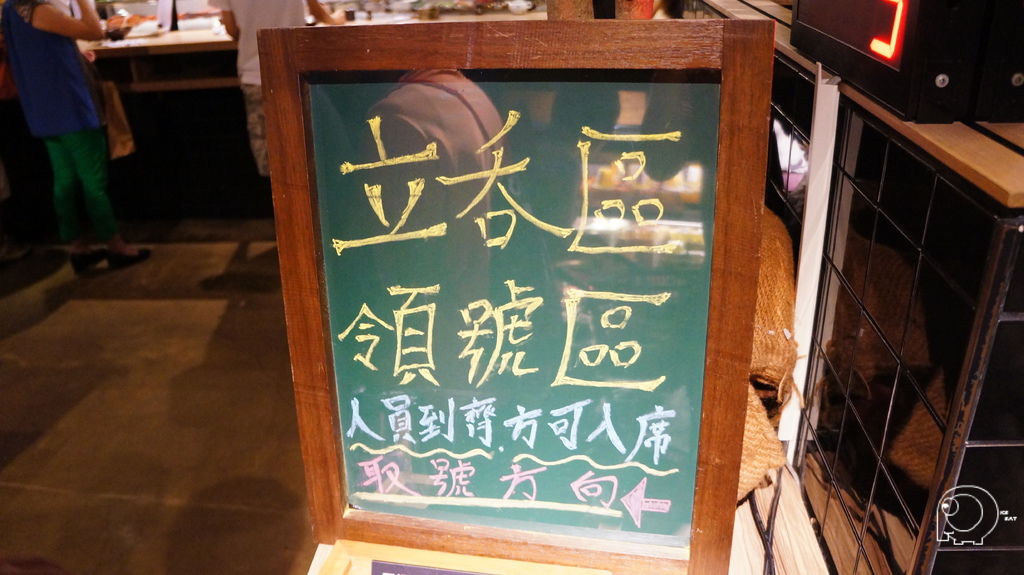 立吞區
領號區
人員到齊.方可入席
取號方向
ICE
EAT